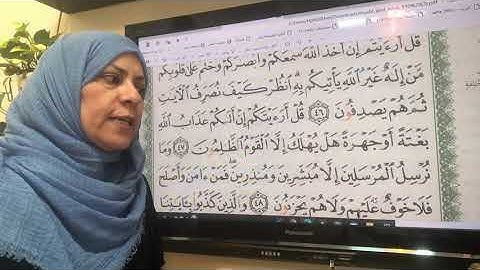 قُلْ أَرَءَيْتُمْ إِنْ أَخَذَ ٱللَّهُ سَمْعَكُمْ وَأَبْصَٰرَكُمْ وَخَتَمَ عَلَىٰ قُلُوبِكُم
مَّنْ إِلَٰهٌ غَيْرُ ٱللَّهِ يَأْتِيكُم بِهِ ٱنظُرْ كَيْفَ نُصَرِّفُ ٱلْءَايَٰتِ
ثُمَّ هُمْ يَصْدِفُونَ ٤٦ قُلْ أَرَءَيْتَكُمْ إِنْ أَتَىٰكُمْ عَذَابُ ٱللَّهِ
بَغْتَةً أَوْ جَهْرَةً هَلْ يُهْلَكُ إِلَّا ٱلْقَوْمُ ٱلظَّٰلِمُونَ ٤٧ وَمَا
نُرْسِلُ ٱلْمُرْسَلِينَ إِلَّا مُبَشِّرِينَ وَمُنذِرِينَ فَمَنْ ءَامَنَ وَأَصْلَحَ
فَلَا خَوْفٌ عَلَيْهِمْ وَلَا هُمْ يَحْزَنُونَ ٤٨ وَٱلَّذِينَ كَذَّبُوا۟ بِـَٔايَٰتِنَا
Panasonic